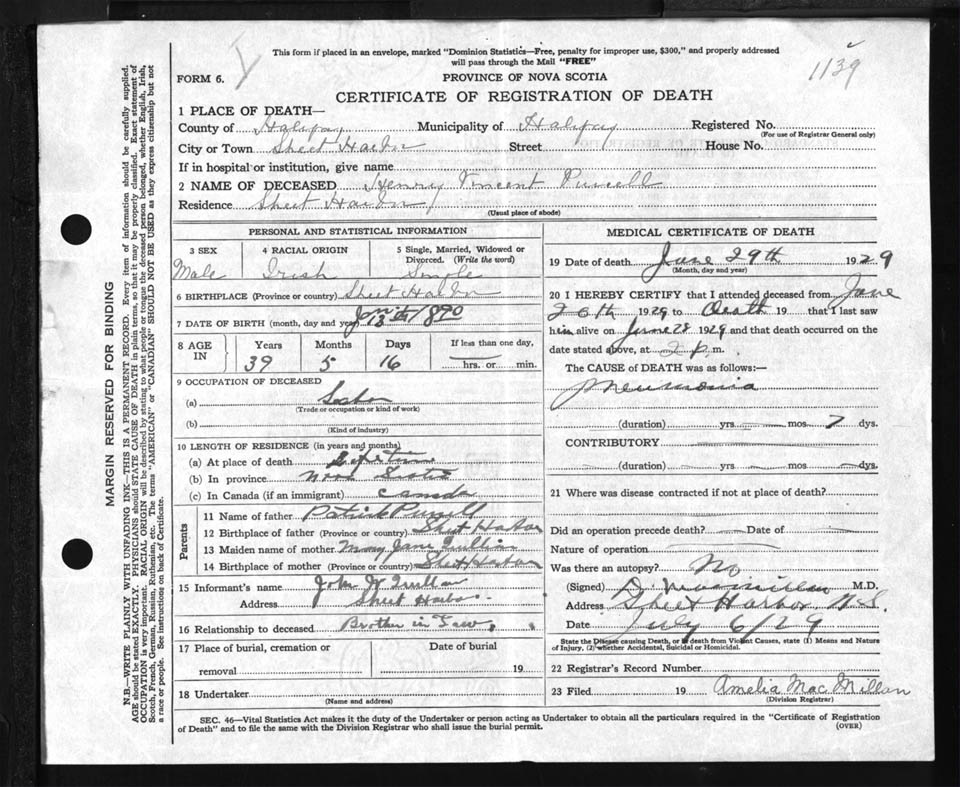 1139
This form if placed in an envelope, marked "Dominion Statistics—Free, penalty for improper use, $300," and properly addressed
will pass through the Mail "FREE"
FORM 6.
PROVINCE OF NOVA SCOTIA
CERTIFICATE OF REGISTRATION OF DEATH
1 PLACE OF DEATH—
County of Halifax Municipality of Halifax Registered No.
(For use of Registrar General only)
City or Town Sheet Harbor Street House No.
If in hospital or institution, give name
2 NAME OF DECEASED Henry Vincent Purcell
Residence Sheet Harbor
(Usual place of abode)
PERSONAL AND STATISTICAL INFORMATION
3 SEX 4 RACIAL ORIGIN 5 Single, Married, Widowed or
Divorced. (Write the word)
Male Irish Single
6 BIRTHPLACE (Province or country) Sheet Harbor
7 DATE OF BIRTH (month, day and year) Jan 13th 1890
8 AGE IN Years Months Days If less than one day,
39 5 16 hrs. or min.
9 OCCUPATION OF DECEASED
(a)
(Trade or occupation or kind of work)
(b)
(Kind of industry)
10 LENGTH OF RESIDENCE (in years and months)
(a) At place of death Life time
(b) In province Nova Scotia
(c) In Canada (if an immigrant) Canada
Parents
11 Name of father Patrick Purcell
12 Birthplace of father (Province or country) Sheet Harbor
13 Maiden name of mother Mary Jane
14 Birthplace of mother (Province or country) Sheet Harbor
15 Informant's name John W
Address Sheet Harbor
16 Relationship to deceased Brother in Law
17 Place of burial, cremation or Date of burial
removal 19
18 Undertaker
(Name and address)
MEDICAL CERTIFICATE OF DEATH
19 Date of death June 29th 1929
(Month, day and year)
20 I HEREBY CERTIFY that I attended deceased from June
26th 1929 to Death 19 that I last saw
him alive on June 28 1929 and that death occurred on
date stated above, at 2 p.m.
The CAUSE of DEATH was as follows:—
Pneumonia
(duration) yrs. mos. 7 dys.
CONTRIBUTORY
(duration) yrs. mos. dys.
21 Where was disease contracted if not at place of death?
Did an operation precede death? Date of
Nature of operation
Was there an autopsy? No
(Signed) D. Macmillan M.D.
Address Sheet Harbor N.S.
Date July 6/29
State the Disease causing Death, or if death from Violent Causes, state (1) Means and Nature
of Injury. (2) whether Accidental, Suicidal or Homicidal.
22 Registrar's Record Number
23 Filed 19 Amelia MacMillan
(Division Registrar)
SEC. 46—Vital Statistics Act makes it the duty of the Undertaker or person acting as Undertaker to obtain all the particulars required in the "Certificate of Registration
of Death" and to file the same with the Division Registrar who shall issue the burial permit. (OVER)
MARGIN RESERVED FOR BINDING
N.B.—WRITE PLAINLY WITH UNFADING INK—THIS IS A PERMANENT RECORD. Every item of information should be carefully supplied.
AGE should be stated EXACTLY. PHYSICIANS should STATE CAUSE OF DEATH in plain terms, so that it may be properly classified. Exact statement of
OCCUPATION is very important. RACIAL ORIGIN will be described by stating to what people or tongue the deceased person belonged, whether English, Irish,
Scotch, French, German, Russian, Ruthenian, etc. The terms "AMERICAN" or "CANADIAN" SHOULD NOT BE USED as they express citizenship but not
a race or people. See instructions on back of Certificate.